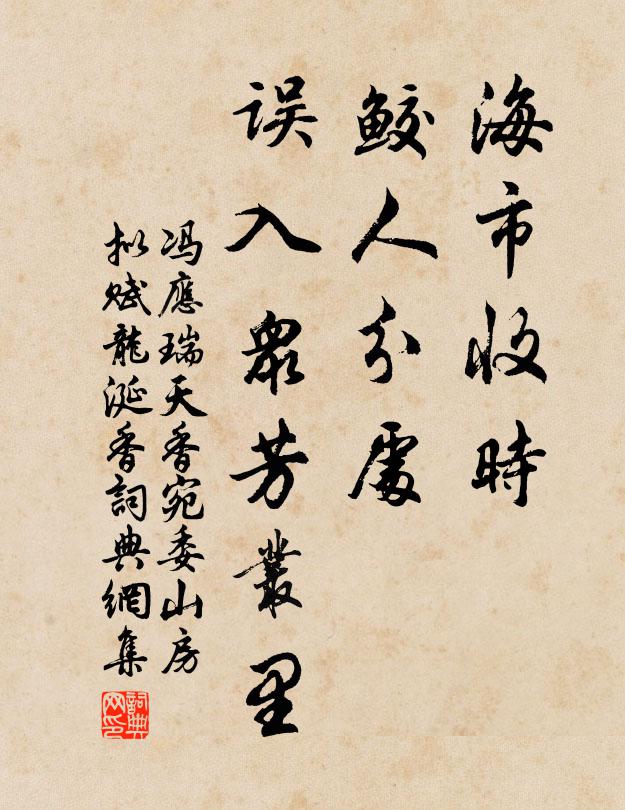 海市收時
鮫人分處
误入眾芳叢里
冯應瑞天香宛委山房
拟赋龍涎香詞典網集
詞典
网印